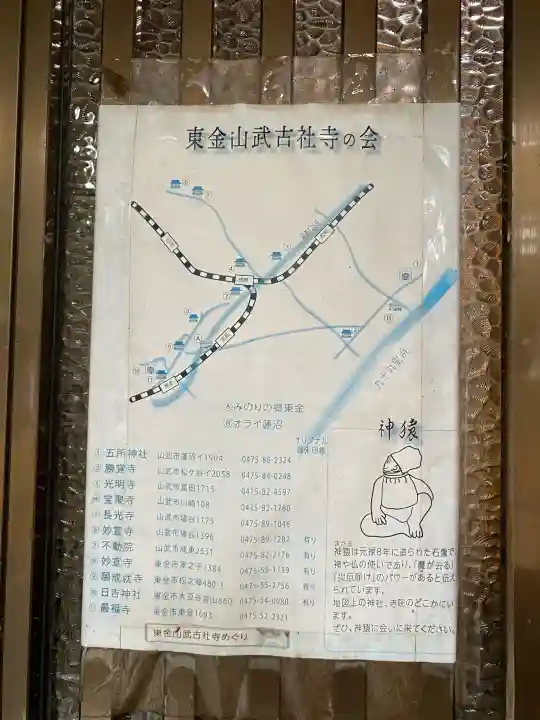 東金山武古社寺の会
九十九里浜
Ⓐみのりの郷東金
Ⓑオライ蓮沼
オリジナル
御朱印帳
①五所神社 山武市蓮沼イ1904 0475-86-2324
②勝覚寺 山武市松ケ谷イ2058 0475-84-0248
③光明寺 山武市富田1715 0475-82-4597
④宝聚寺 山武市川崎108 0475-82-1760
⑤長光寺 山武市埴谷1175 0475-89-1046
⑥妙宣寺 山武市埴谷1396 0475-89-1282 有り
⑦不動院 山武市成東2551 0475-82-2176 有り
⑧妙宣寺 東金市家之子1384 0475-55-1739 有り
⑨願成就寺 東金市松之郷480-1 0475-55-2756 有り
⑩日吉神社 東金市大豆谷860 0475-54-0980 有り
⑪最福寺 東金市東金1693 0475-52-2321
東金山武古社寺めぐり
神猿
まさる
神猿は元禄8年に造られた石像で
神や仏の使いであり、「魔が去る」
「災厄除け」のパワーがあると伝え
られています。
地図上の神社、寺院のどこかにい
ます。
ぜひ、神猿に会いに来てください。